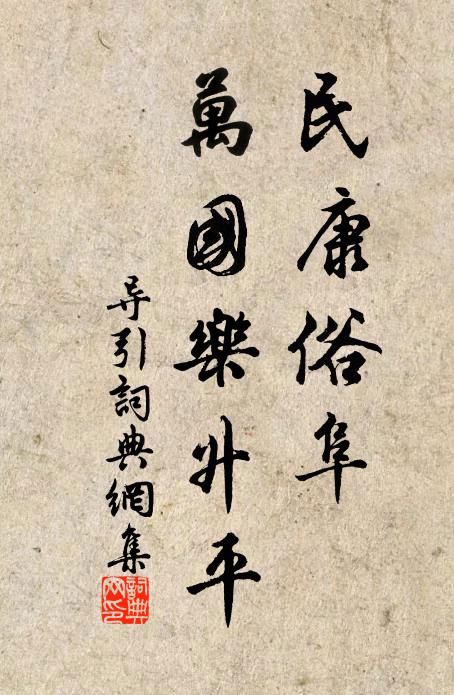 民康俗阜
萬國樂升平
导引詞典網集
詞典網印